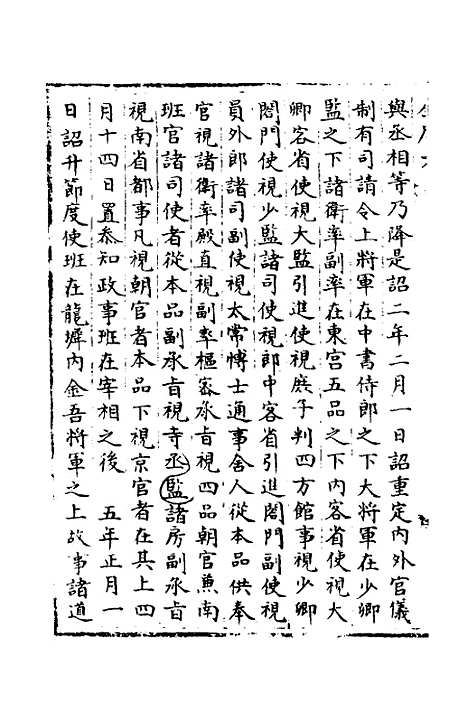 與丞相等乃降是詔二年二月一日詔重定内外官儀
制有司請令上將軍在中書侍郎之下大將軍在少卿
監之下諸衛率副率在東宫五品之下内客省使視大
卿客省使視大監引進使視庻子判四方館事視少卿
閤門使視少監諸司使視郎中客省引進閤門副使視
員外郎諸司副使視太常愽士通事舎人從本品供奉
官視諸衛率殿直視副率樞宻承㫖視四品朝官兼南
班官諸司使者從本品副承㫖視寺丞監諸房副承㫖
視南省都事凡視朝官者本品下視京官者在其上四
月十四日置叅知政事班在宰相之後　五年正月一
日詔升節度使班在龍墀内金吾將軍之上故事諸道